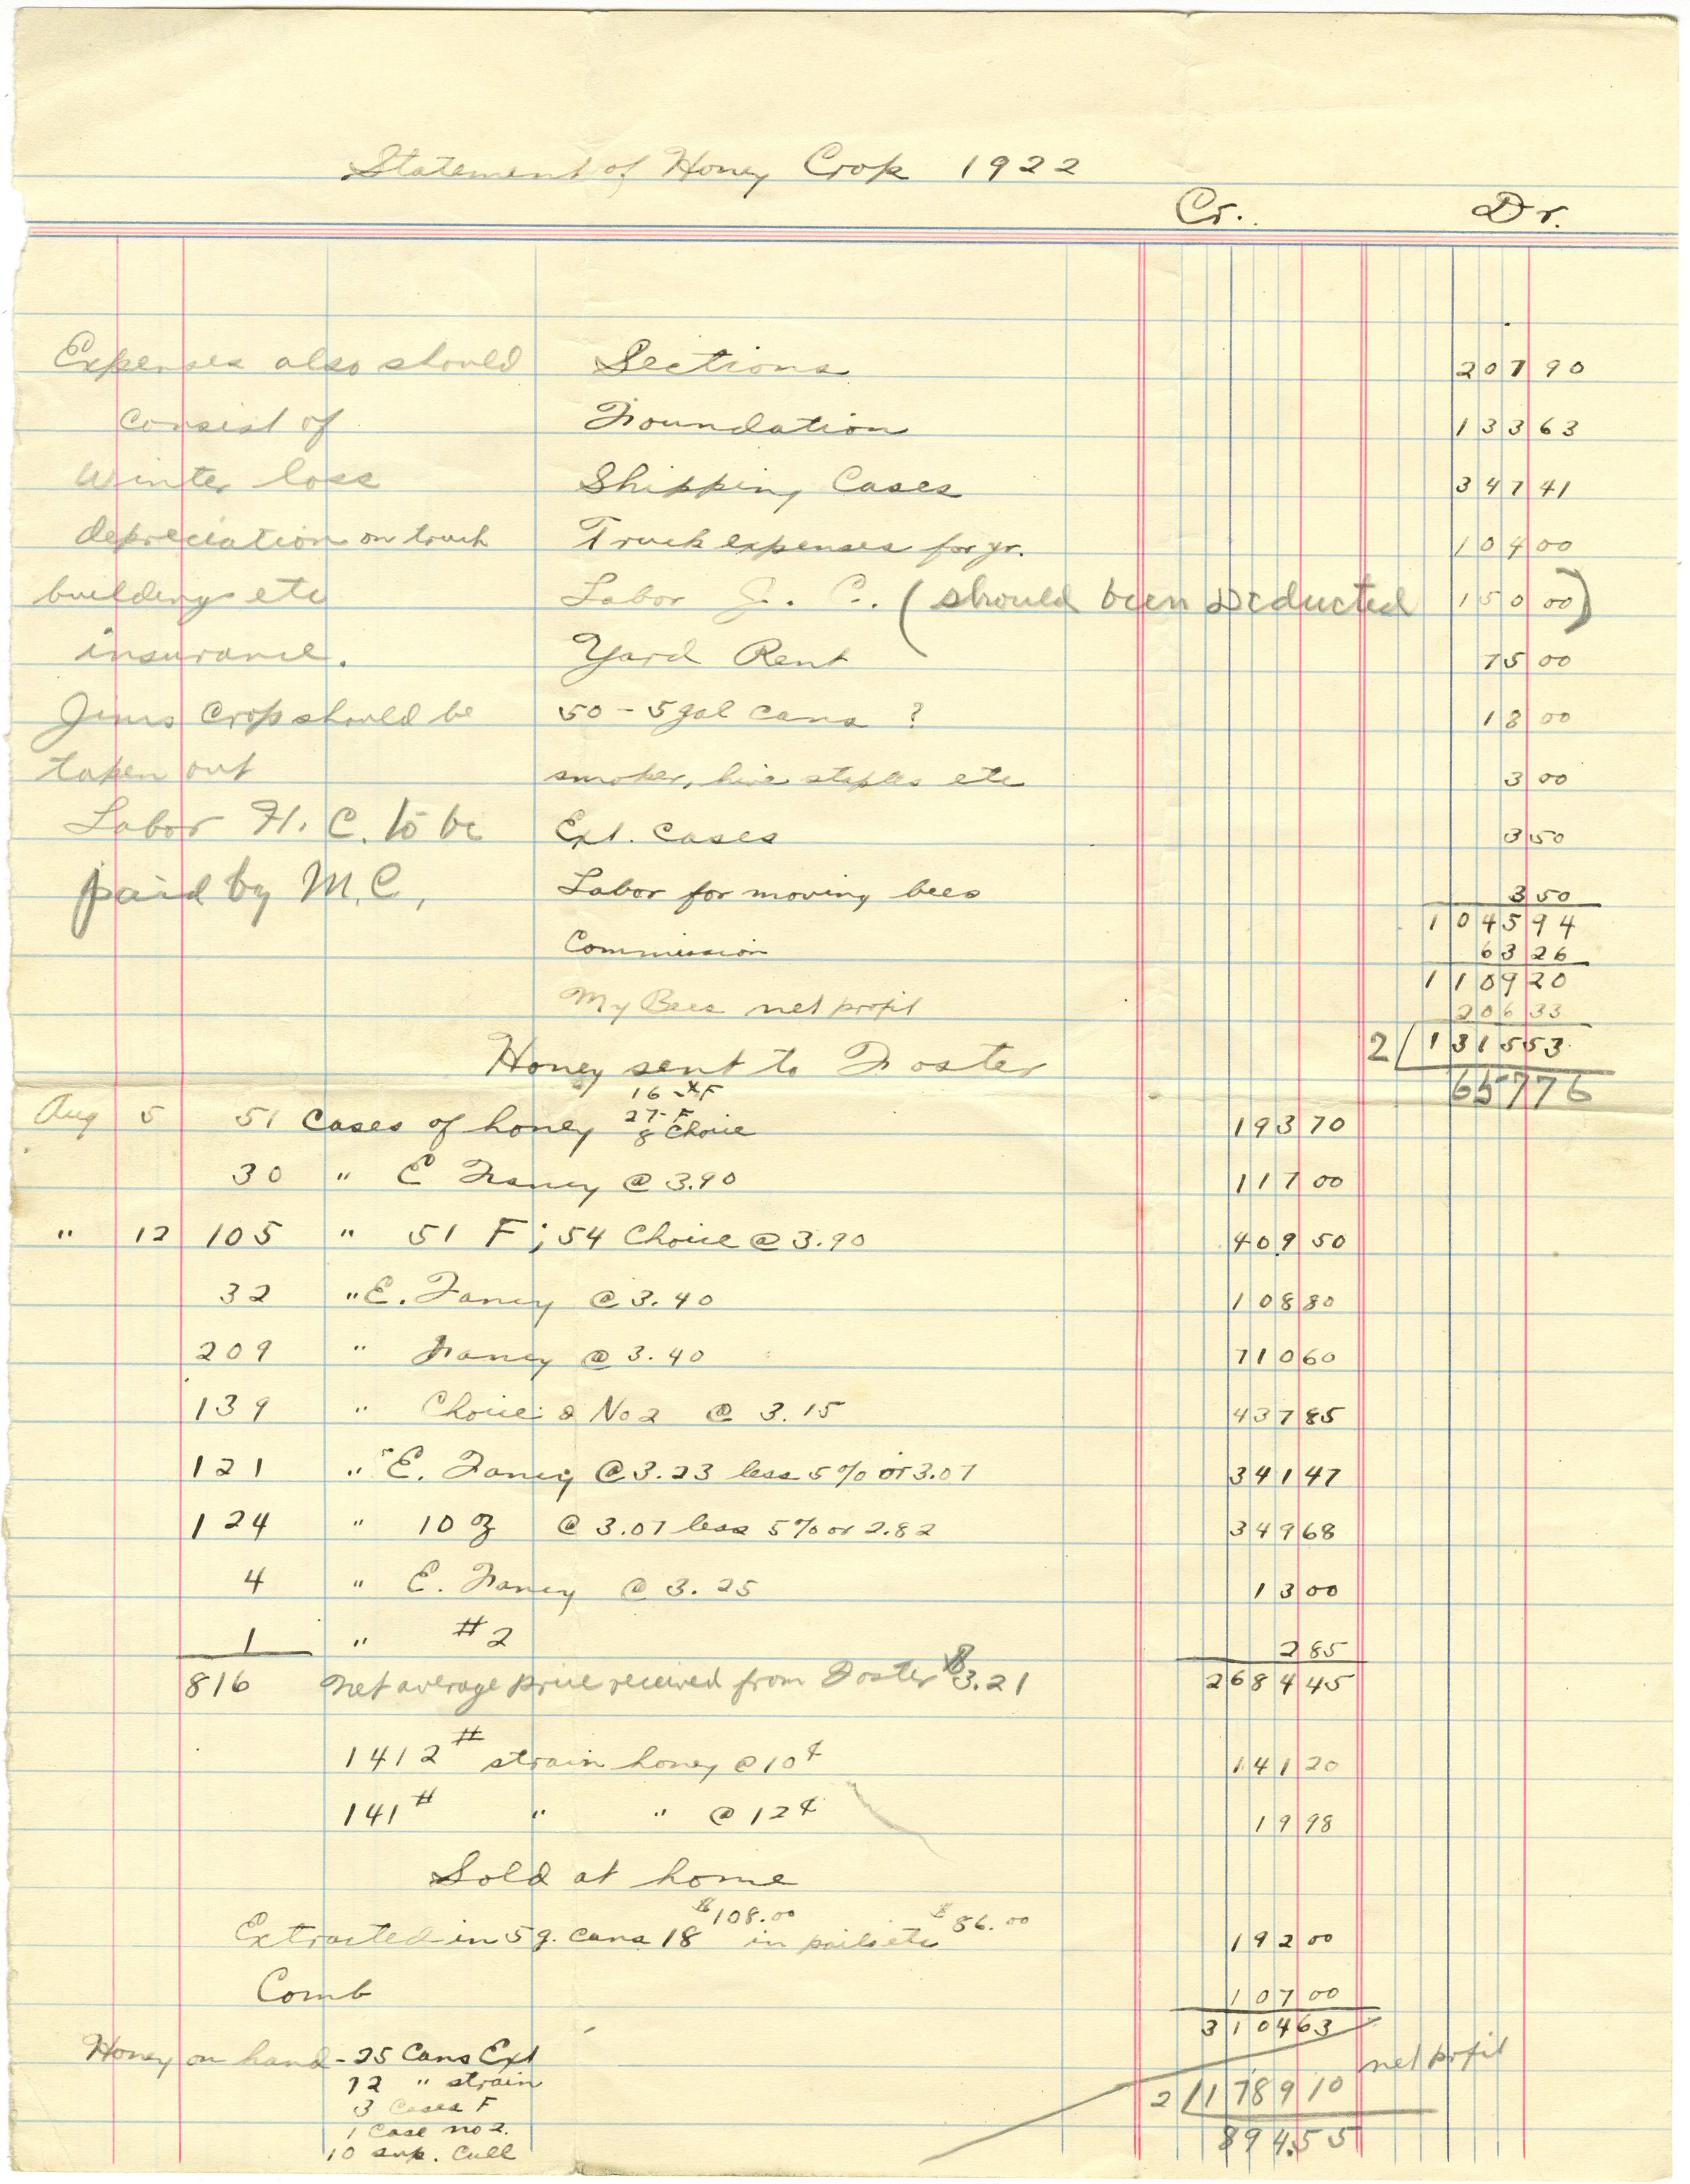 Statement of Honey Crop 1922
Cr. Dr.
Expenses also should Sections 207 90
consist of Foundation 133 63
Winter loss Shipping Cases 347 41
depreciation on truck Truck expenses for yr. 104 00
buildings etc Labor J. C. (should been deducted 150 00)
insurance. Yard Rent 75 00
Jims Crop should be 50 - 5 gal cans ? 18 00
taken out smoker, hive staples etc 3 00
Labor H. C. to be Ext. Cases 3 50
paid by M.C, Labor for moving bees 3 50
1 045 94
Commission 63 26
1 109 20
My Bees net profit 206 33
2 1 315 53
Honey sent to Foster 657 76
16 - XF
Aug 5 51 Cases of honey 27 - F 193 70
8 Choice
30 " E Fancy @ 3.90 117 00
" 12 105 " 51 F ; 54 Choice @ 3.90 409 50
32 " E. Fancy @ 3.40 108 80
209 " Fancy @ 3.40 710 60
139 " Choice & No 2 @ 3.15 437 85
121 " E. Fancy @ 3.23 less 5% or 3.07 341 47
124 " 10 oz @ 3.07 less 5% or 2.82 349 68
4 " E. Fancy @ 3.25 13 00
1 " #2 2 85
816 Net average price received from Foster $3.21 2684 45
1412# strain honey @ 10¢ 141 20
141# " " @ 12¢ 19 98
Sold at home
$108.00 $86.00
Extracted in 5 g. cans 18 in pails etc 192 00
Comb 107 00
3104 63
Honey on hand - 25 Cans Ext net profit
12 " strain
3 Cases F 2 1 789 10
1 Case no 2.
10 sup. Cull 894.55